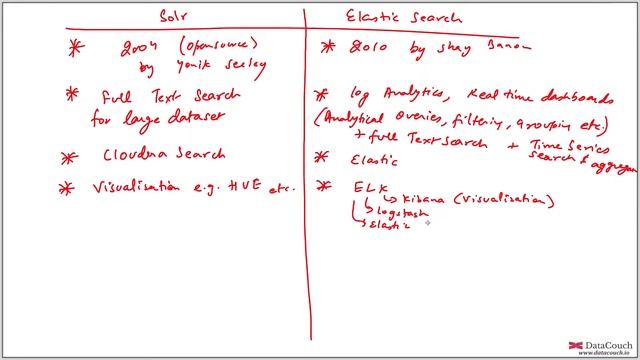 Solr
Elastic Search
* 2004 (Opensource)
by Yonik Seeley
* 2010 by Shay Banon
* Full Text Search
for large dataset
* log Analytics, Real time dashboards
(Analytical Queries, filtering, grouping etc.)
+ full Text Search + Time Series
search & aggregation
* Cloudera Search
* Elastic
* Visualisation e.g. HUE etc.
* ELK
Kibana (Visualisation)
logstash
Elastic
DataCouch
www.datacouch.io